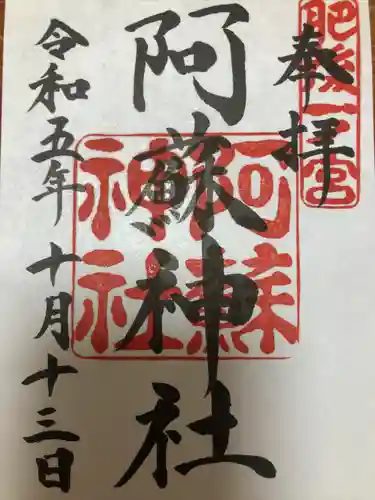 肥後一之宮
奉拝
阿蘇神社
阿蘇
神社
令和五年十月十三日